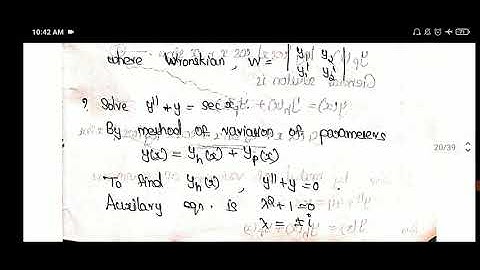 10:42 AM
where Wronskian, W = | y₁ y₂ |
| y₁' y₂' |
? Solve y'' + y = sec x.
By method of variation of parameters
y(x) = yₕ(x) + yₚ(x)
20/39
To find yₕ(x), y'' + y = 0.
Auxilary eqn. is λ² + 1 = 0
λ = ± i